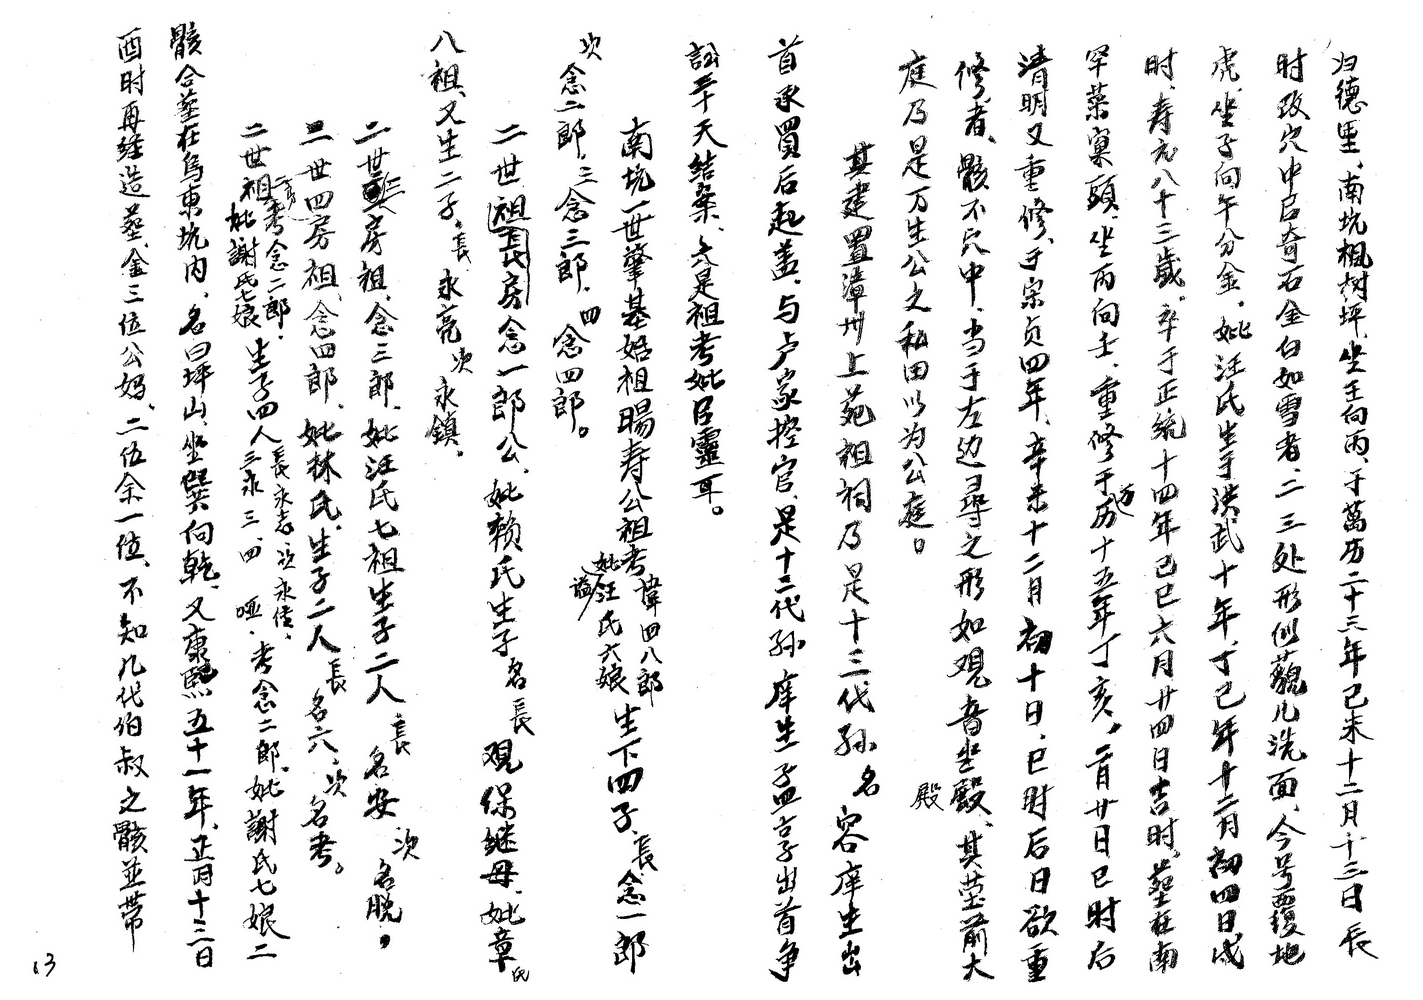 归德里、南坑枧树坪、坐壬向丙、于萬历二十三年己未十二月十三日辰
时改穴中启奇石金白如雪者、二三处形似藐儿洗面、今号覆地
虎、坐子向午分金、妣汪氏生于洪武十年、丁巳年十二月初四日戌
时、寿元八十三歲、卒于正统十四年己巳六月廿四日吉时、葬在南
罕菜窠頭、坐丙向壬、重修于万历十五年丁亥、二月廿日巳时后
清明又重修、于宗贞四年、辛未十二月初十日、巳时后日欲重
修者、骸不穴中、当于左边尋之形如观音坐毀、其茔前大
殿
庭乃是万生公之私田以为公庭。
其建置漳州上苑祖祠乃是十三代孙名容庠生出
首承買后起盖、与卢家控官、是十二代孙庠生孟享出首争
訟三十天结案、亦是祖考妣启靈耳。
南坑一世肇基始祖暘寿公祖考諱四八郎妣汪氏六娘謚生下四子、長念一郎
次念二郎、三念三郎、四念四郎。
二世祖長房念一郎公、妣赖氏生子名長观保继母、妣章氏
八祖、又生二子。長永亮次永鎮、
二世三房祖、念三郎、妣汪氏七祖生子二人長名安次名脱。
二世四房祖、念四郎、妣林氏、生子二人長名六、次名考。
二世祖二房考念二郎、妣謝氏七娘生子四人長永志次永传、三永三、四哑、考念二郎、妣謝氏七娘二
骸合葬在烏東坑内、名曰坪山、坐巽向乾、又康熙五十一年、正月十三日
酉时再经造葬、金三位公妈、二伍余一位、不知几代伯叔之骸並带
13